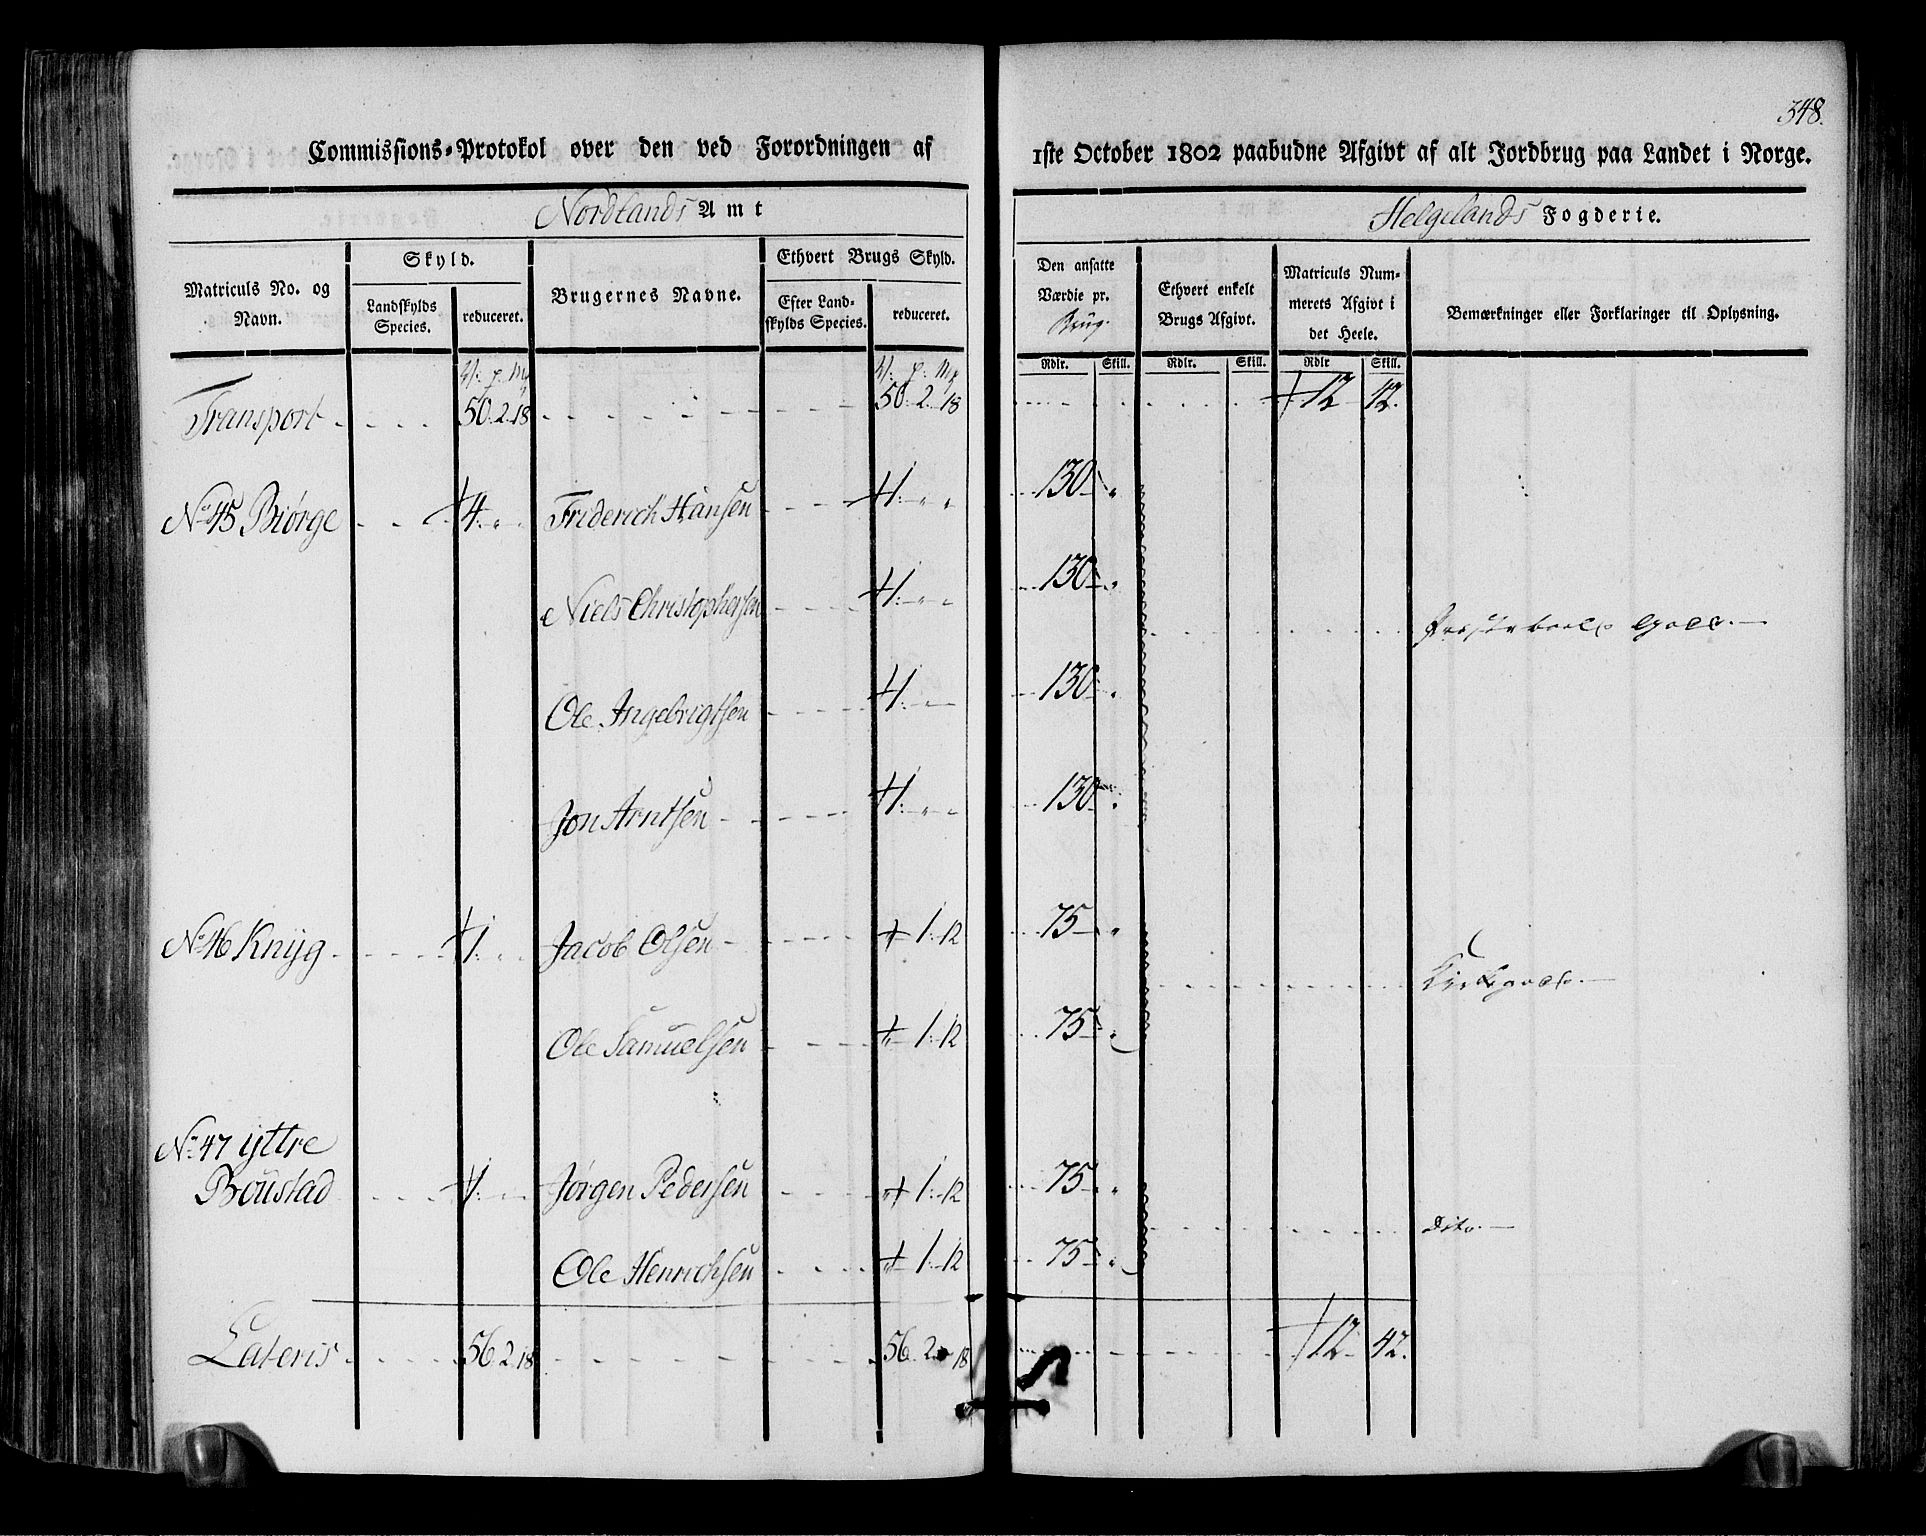 348.
Commissions-Protokol over den ved Forordningen af 1ste October 1802 paabudne Afgivt af alt Jordbrug paa Landet i Norge.
Nordlands Amt Helgelands Fogderie.
Matriculs No. og Navn. Skyld. Landskylds Species. reduceret. Brugernes Navne. Ethvert Brugs Skyld. Efter Landskylds Species. reduceret. Den ansatte Værdie pr. Brug. Ethvert enkelt Brugs Afgivt. Matriculs Nummerets Afgivt i det Heele. Bemærkninger eller Forklaringer til Oplysning.
Rdlr. Skill. Rdlr. Skill. Rdlr Skill.
Transport 50. 2. 18 50. 2. 18 12 42.
No 45 Biørge 4. Friderich Hansen 1. 130
Niels Christophersen 1. 130
Præsteboels Gods.
Ole Ingebrigtsen 1. 130
Jon Arntsen 1. 130
No 46 Knyg 1. Jacob Olsen 1. 12 75
Kirkegods.
Ole Samuelsen 1. 12 75
No 47 ÿttre
Boustad 1. Jørgen Pedersen 1. 12 75
Dito.
Ole Henrichsen 1. 12 75
Lateris 56. 2. 18 56. 2. 18 12 42.